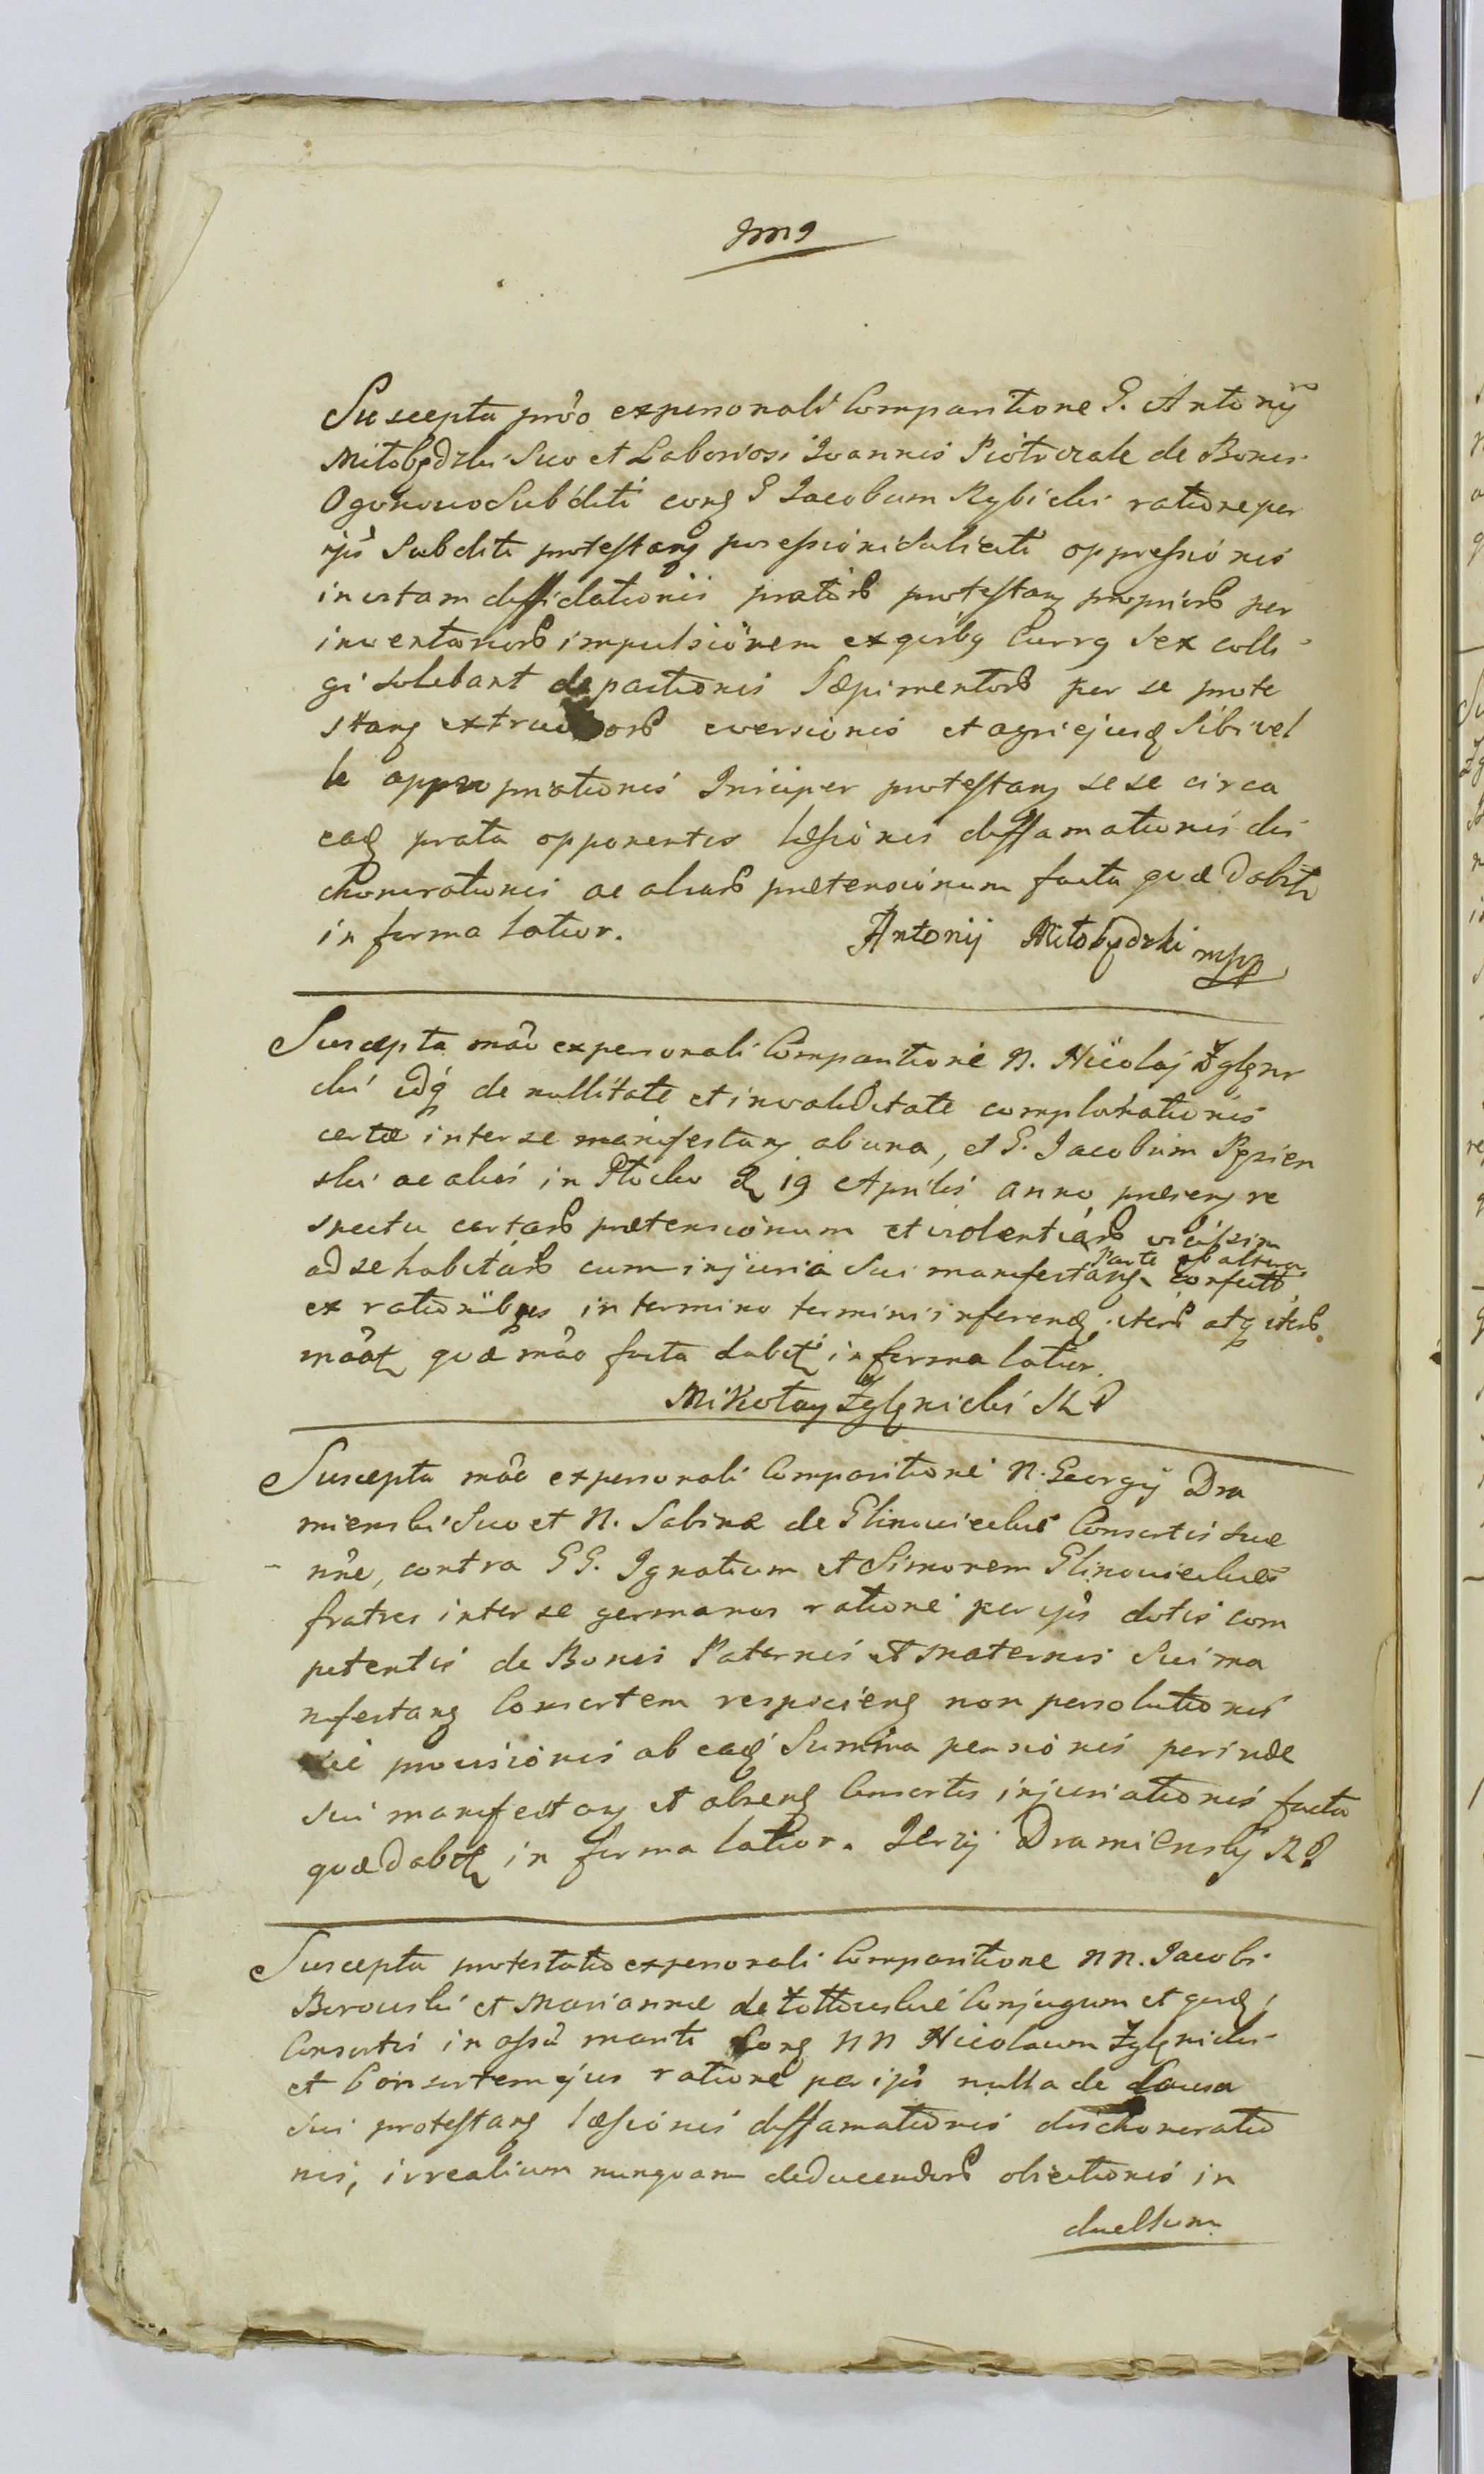 Suscepta pro͂o ex personali Comparitione G. Antonij
Miłobędzki Suo et Laboriosi Joannis Piotrczak de Bonis
Ogonowo Subditi con͂g G Jacobum Rybicki ratione per
ips͂ Subditi protestan͂g possessioni Subiecti oppressionis
in vitam diffidationis prator͂ protestan͂g proprior͂ per
inventarior͂ impulsionem ex quibg Currg Sex colli
gi solebant depactionis Sæpimentor͂ per se prote
stan͂g extructor͂ eversionis et agri ejusq͂ Sibi vel
le appropriationis Insuper protestan͂g se se circa
eaq͂ prata opponentis læsionis diffamationis dis
chonorationis ac aliar͂ prætensionum facta quæ dabit͂
in forma latior.
Antonij Miłobędzki mpp
Suscepta ma͂o ex personali Comparitione N. Nicolaj Żglęni
cki id͂q de nullitate et invaliditate complanationis
certæ inter se manifestan͂g ab una, et G. Jacobum
ski ac alios in Płocko 19 Aprilis anno præsen͂g re
spectu certar͂ prætensionum et violentiar͂ vicissim
parte ab altera
ad se habitar͂ cum injuria Sui manifestan͂g confect͂
ex rationibus in termino termini inferend͂ iter͂ atq͂ iter͂
ma͂at͂ quæ ma͂o facta dabit͂ in forma latior.
Mikołay Żglęnicki
Suscepta ma͂o ex personali Comparitione N. Georgij Dra
mienski Suo et N. Sabinæ de Glinowieckie Consortis Suæ
n͂ne, contra GG. Ignatium et Simonem Glinowieckies
fratres inter se germanos ratione per ips͂ dotis com
petentis de Bonis Paternis et Maternis Sui ma
nifestan͂g Consortem respicien͂g non persolutionis
provisionis ab eaq͂ Summa pensionis perinde
Sui manifestan͂g et absen͂g Consortis injuriationis facta
quæ dabit͂ in forma latior. Jerzij Dramienskij
Suscepta protestatio ex personali Comparitione NN. Jacobi
Borowski et Mariannæ de Conjugum et
Consortis in ass͂a mariti Con͂g NN Nicolaum Żglęnicki
et Consortem ejus ratione per ips͂ nulla de Causa
Sui protestan͂g læsionis diffamationis dischoneratio
nis, irrealium nunquam deducendor͂ obiectionis in
duellum